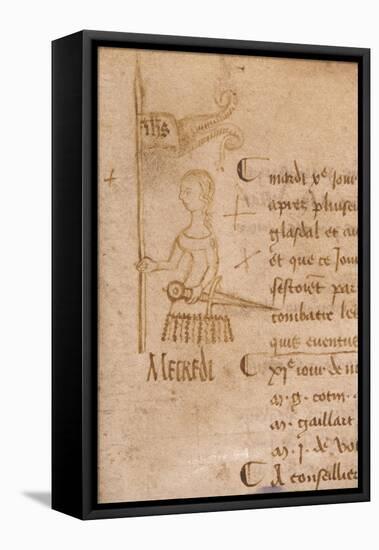 ihs
mardi xe iour
apres pluse
glasdal et au
et que ce Jou
sestoiet par
combatre le
quis eventus
MECREDI
xje iour de m
m. g. cotin.
m. gaillart
m. J. de
A conseillie